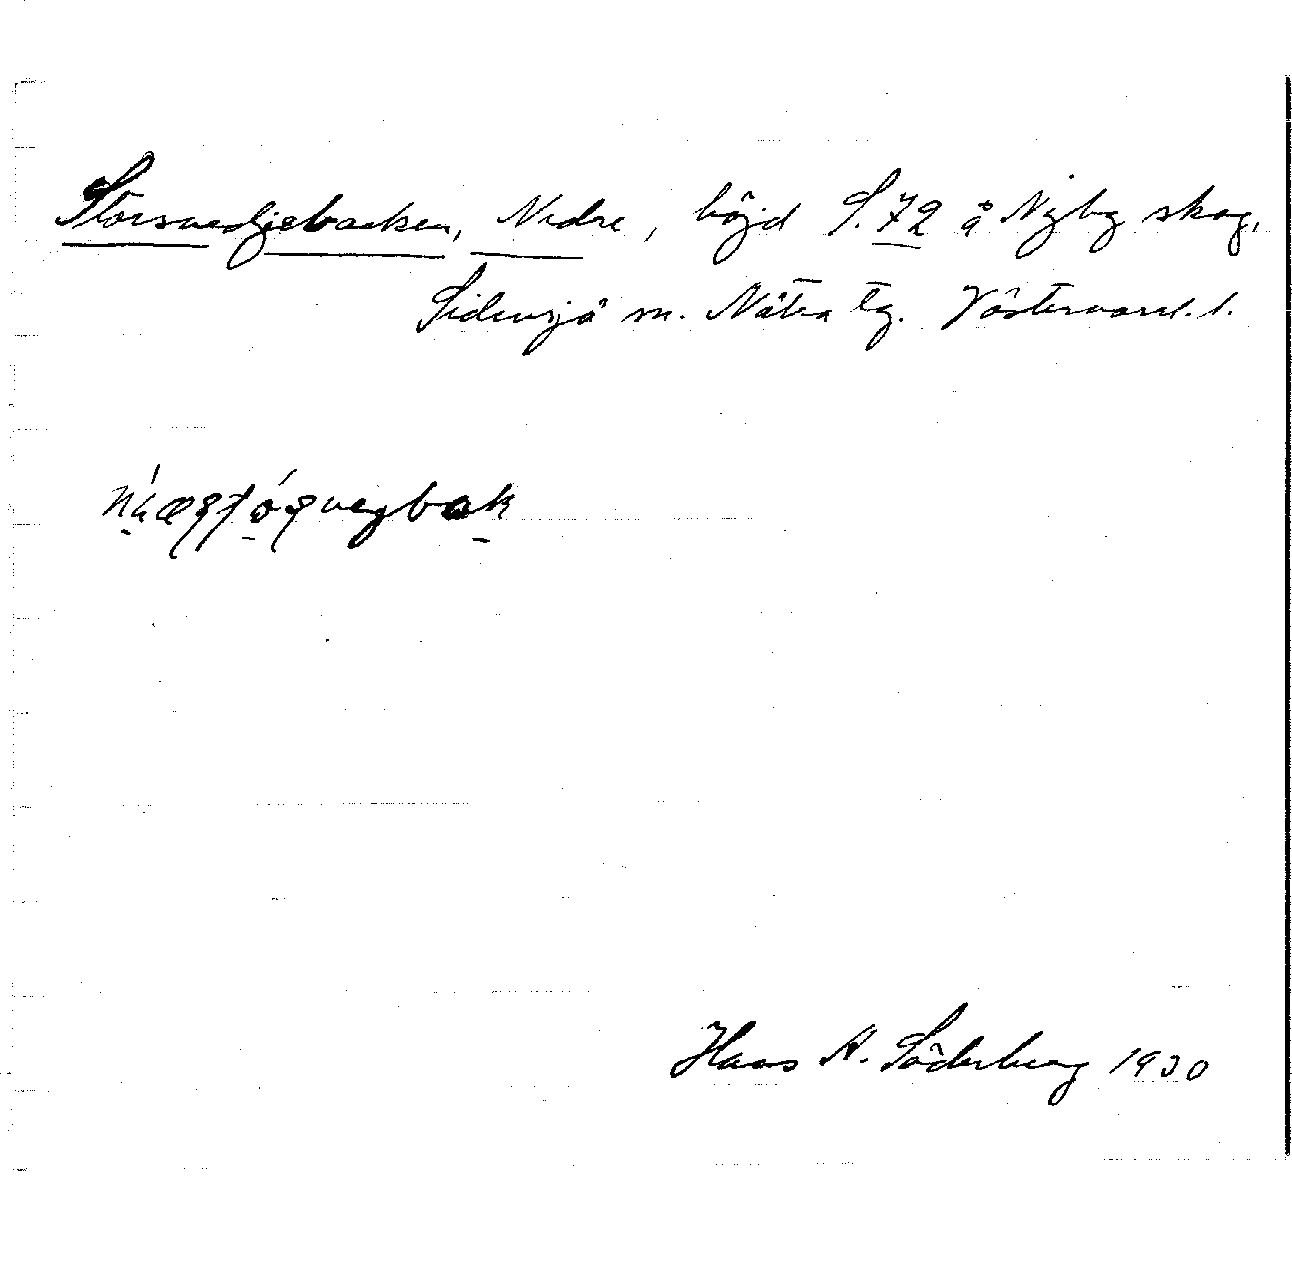 Storsvedjebacken, Nedre, höjd S.72 å Nyby skog,
Sidensjö sn. Nätra tg. Västernorrl. l.
Hans A. Söderberg 1930